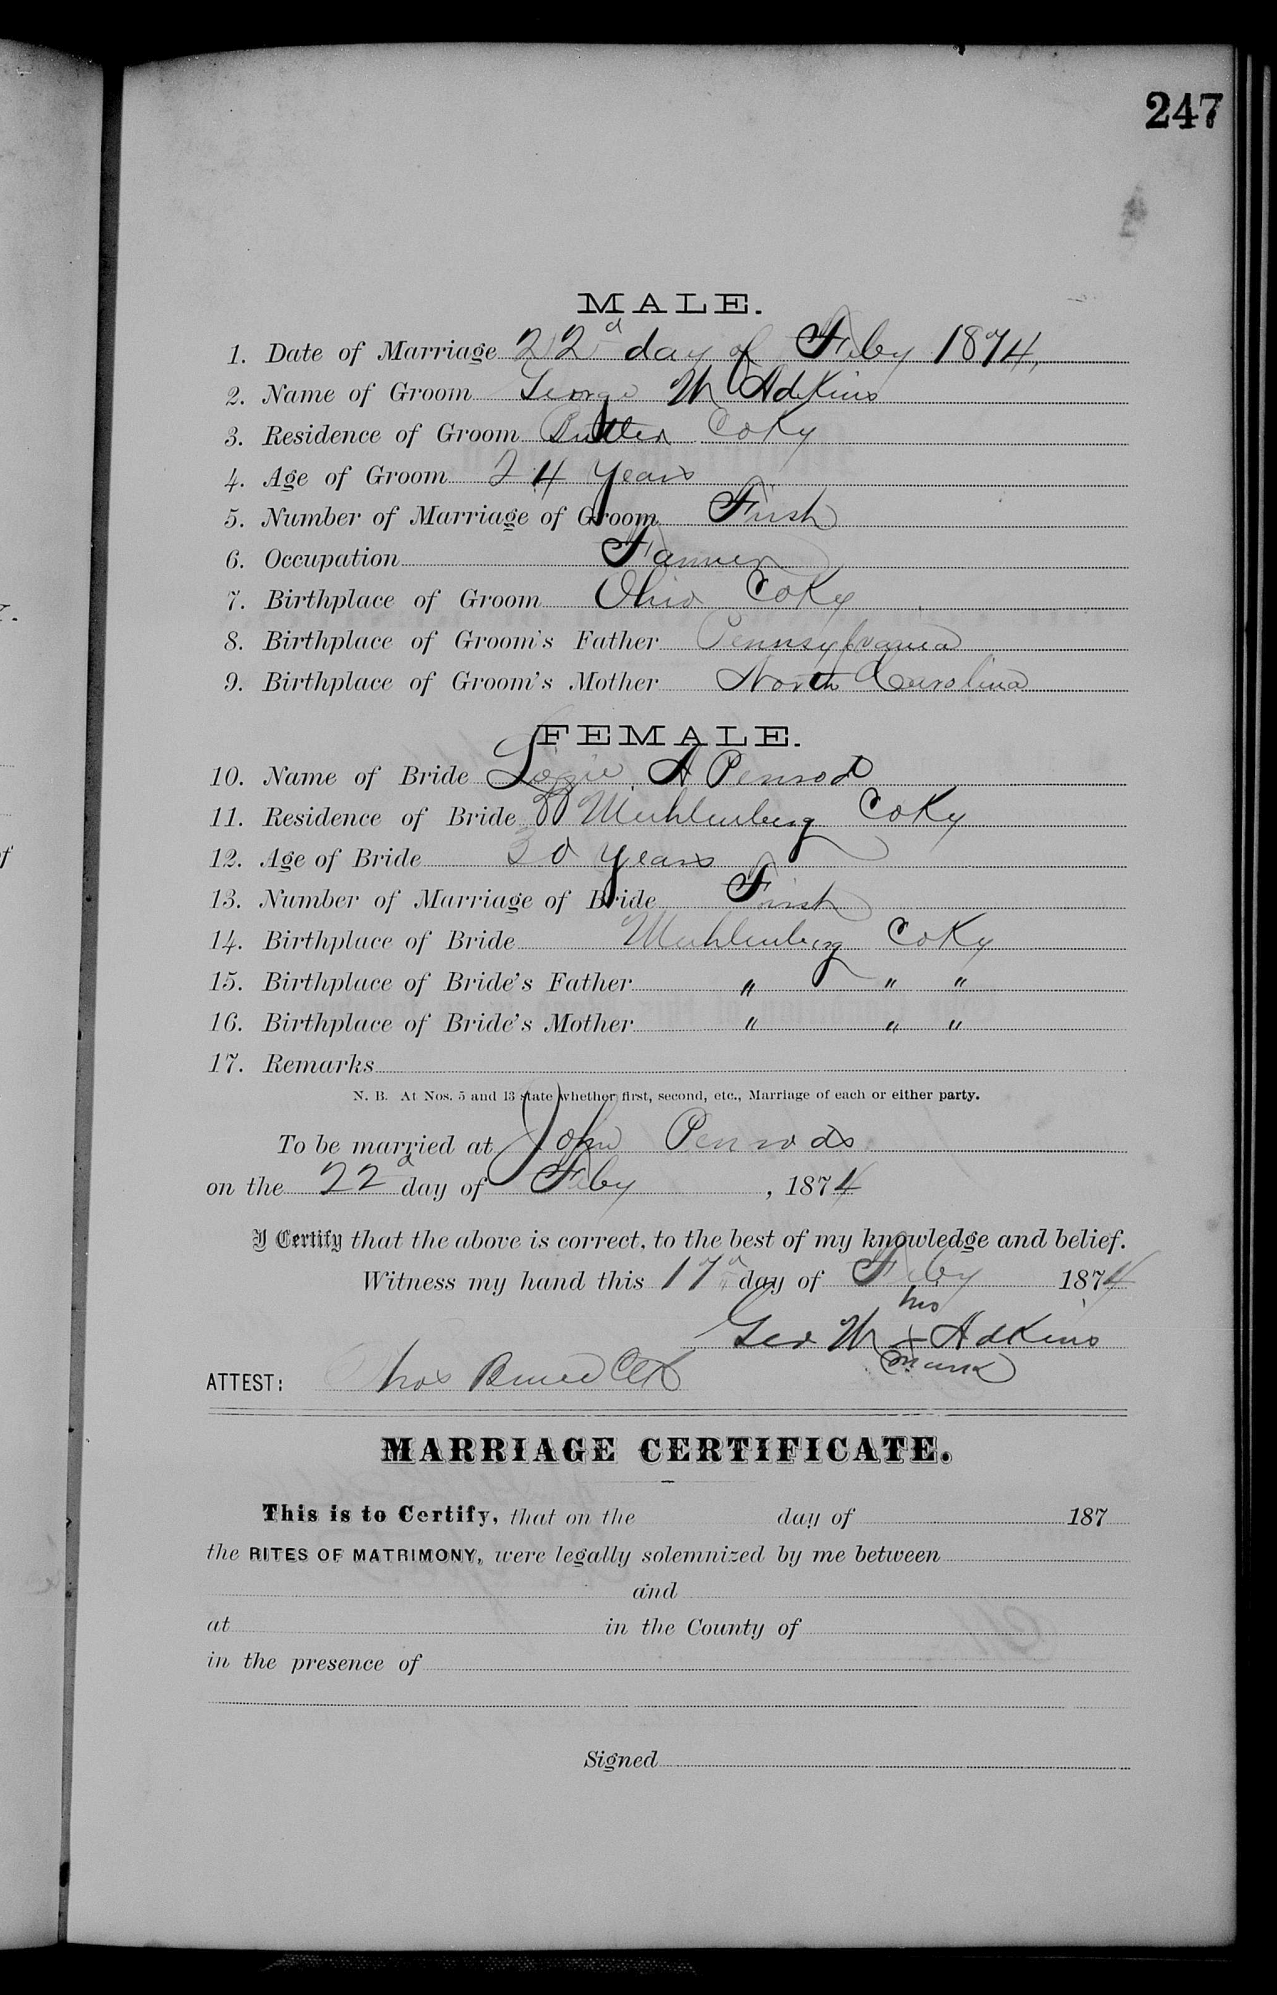 247
MALE.
1. Date of Marriage 22d day of Feby 1874,
2. Name of Groom George W Adkins
3. Residence of Groom Butler Co Ky
4. Age of Groom 24 years
5. Number of Marriage of Groom First
6. Occupation Farmer
7. Birthplace of Groom Ohio Co Ky
8. Birthplace of Groom's Father Pennsylvania
9. Birthplace of Groom's Mother North Carolina
FEMALE.
10. Name of Bride A Penrod
11. Residence of Bride Muhlenberg Co Ky
12. Age of Bride 30 years
13. Number of Marriage of Bride First
14. Birthplace of Bride Muhlenberg Co Ky
15. Birthplace of Bride's Father " " "
16. Birthplace of Bride's Mother " " "
17. Remarks
N. B. At Nos. 5 and 13 state whether first, second, etc., Marriage of each or either party.
To be married at John Penrods
on the 22d day of Feby , 1874
I Certify that the above is correct, to the best of my knowledge and belief.
Witness my hand this 17 day of Feby 1874
his
Geo W x Adkins
mark
ATTEST: Thos Bruce Clk
MARRIAGE CERTIFICATE.
This is to Certify, that on the day of 187
the RITES OF MATRIMONY, were legally solemnized by me between
and
at in the County of
in the presence of
Signed